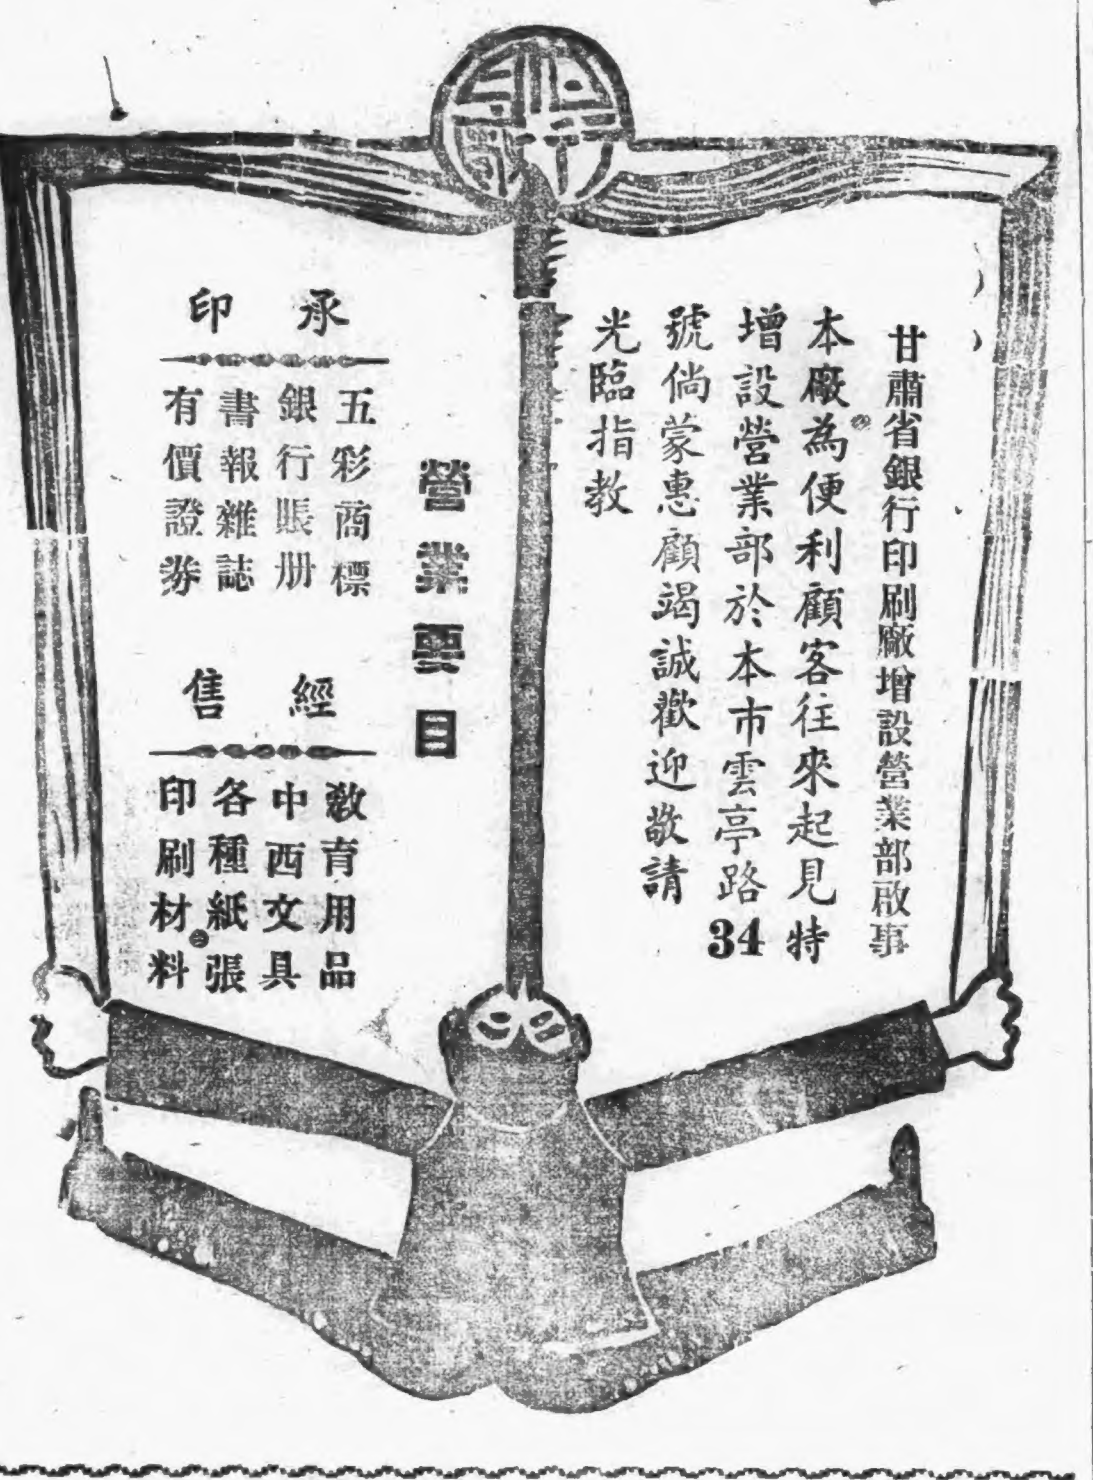 甘肅省銀行印刷廠增設營業部啟事
本廠為便利顧客往來起見特
增設營業部於本市雲亭路34
號倘蒙惠顧竭誠歡迎敬請
光臨指教
營業要目
承印
五彩商標
銀行賬册
書報雜誌
有價證券
經售
教育用品
中西文具
各種紙張
印刷材料